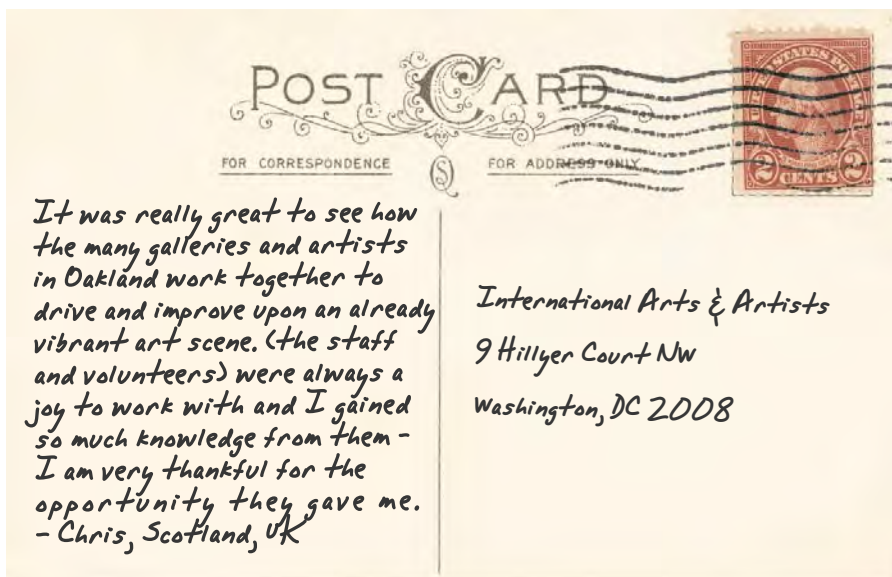 POST CARD
FOR CORRESPONDENCE
FOR ADDRESS ONLY
UNITED STATES POSTAGE
2 CENTS 2
It was really great to see how
the many galleries and artists
in Oakland work together to
drive and improve upon an already
vibrant art scene. (the staff
and volunteers) were always a
joy to work with and I gained
so much knowledge from them -
I am very thankful for the
opportunity they gave me.
- Chris, Scotland, UK
International Arts & Artists
9 Hillyer Court NW
Washington, DC 2008